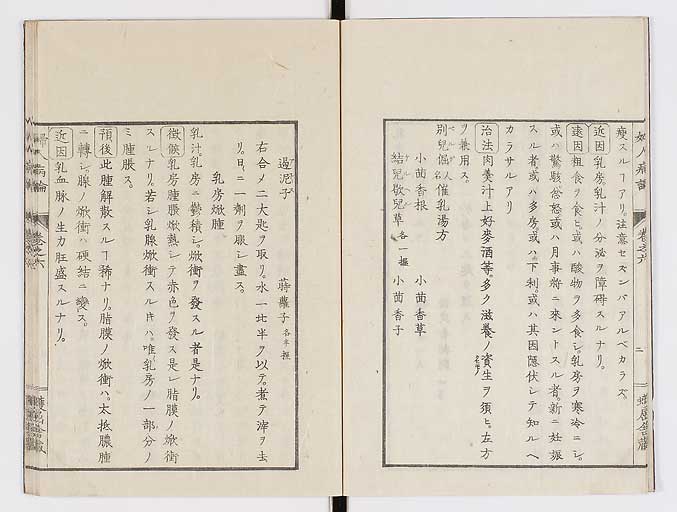 婦人病論 卷之六 二
瘦スルヿアリ。注意セズンバアルベカラズ。
近因 乳房。乳汁ノ分泌ヲ障碍スルナリ。
遠因 粗食ヲ食ヒ。或ハ酸物ヲ多食シ。乳房ヲ寒冷ニシ。
或ハ驚駭忿怒。或ハ月事將ニ來ントスル者。新ニ妊娠
スル者。或ハ多房。或ハ下利。或ハ其因隱伏シテ知ルヘ
カラサルアリ
治法 肉羹汁上好麥酒等。多ク滋養ノ資生ヲ須ヒ。左方
ヲ兼用ス。
別兒倔 人名 催乳湯方
小茴香根 小茴香草
結兒歇兒草 各一握 小茴香子
過泥子 蒔蘿子 各半握
右合ノ二大匙ヲ取リ。水一比半ヲ以テ。煮テ滓ヲ去
リ。日ニ一劑ヲ服シ盡ス。
乳房焮腫
乳汁。乳房ニ鬱積シ。焮衝ヲ發スル者是ナリ。
徴候 乳房腫脹焮熱シテ赤色ヲ發ス是レ脂膜ノ焮衝
スルナリ。若シ乳腺焮衝スルキハ。唯乳房ノ一部分ノ
ミ腫脹ス。
預後 此腫解散スルヿ稀ナリ。脂膜ノ焮衝ハ。大抵膿腫
ニ轉シ。腺ノ焮衝ハ硬結ニ變ス。
近因 乳血脉ノ生力旺盛スルナリ。
卷之六